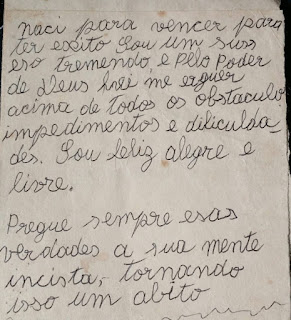 naci para vencer para
ter exito Sou um suss
eso tremendo, e Pelo Poder
de Deus hei me erguer
acima de todos os obstaculo
impedimentos e diliculda
des. Sou feliz alegre e
livre.
Pregue sempre esas
verdades a sua mente
incista, tornando
isso um abito